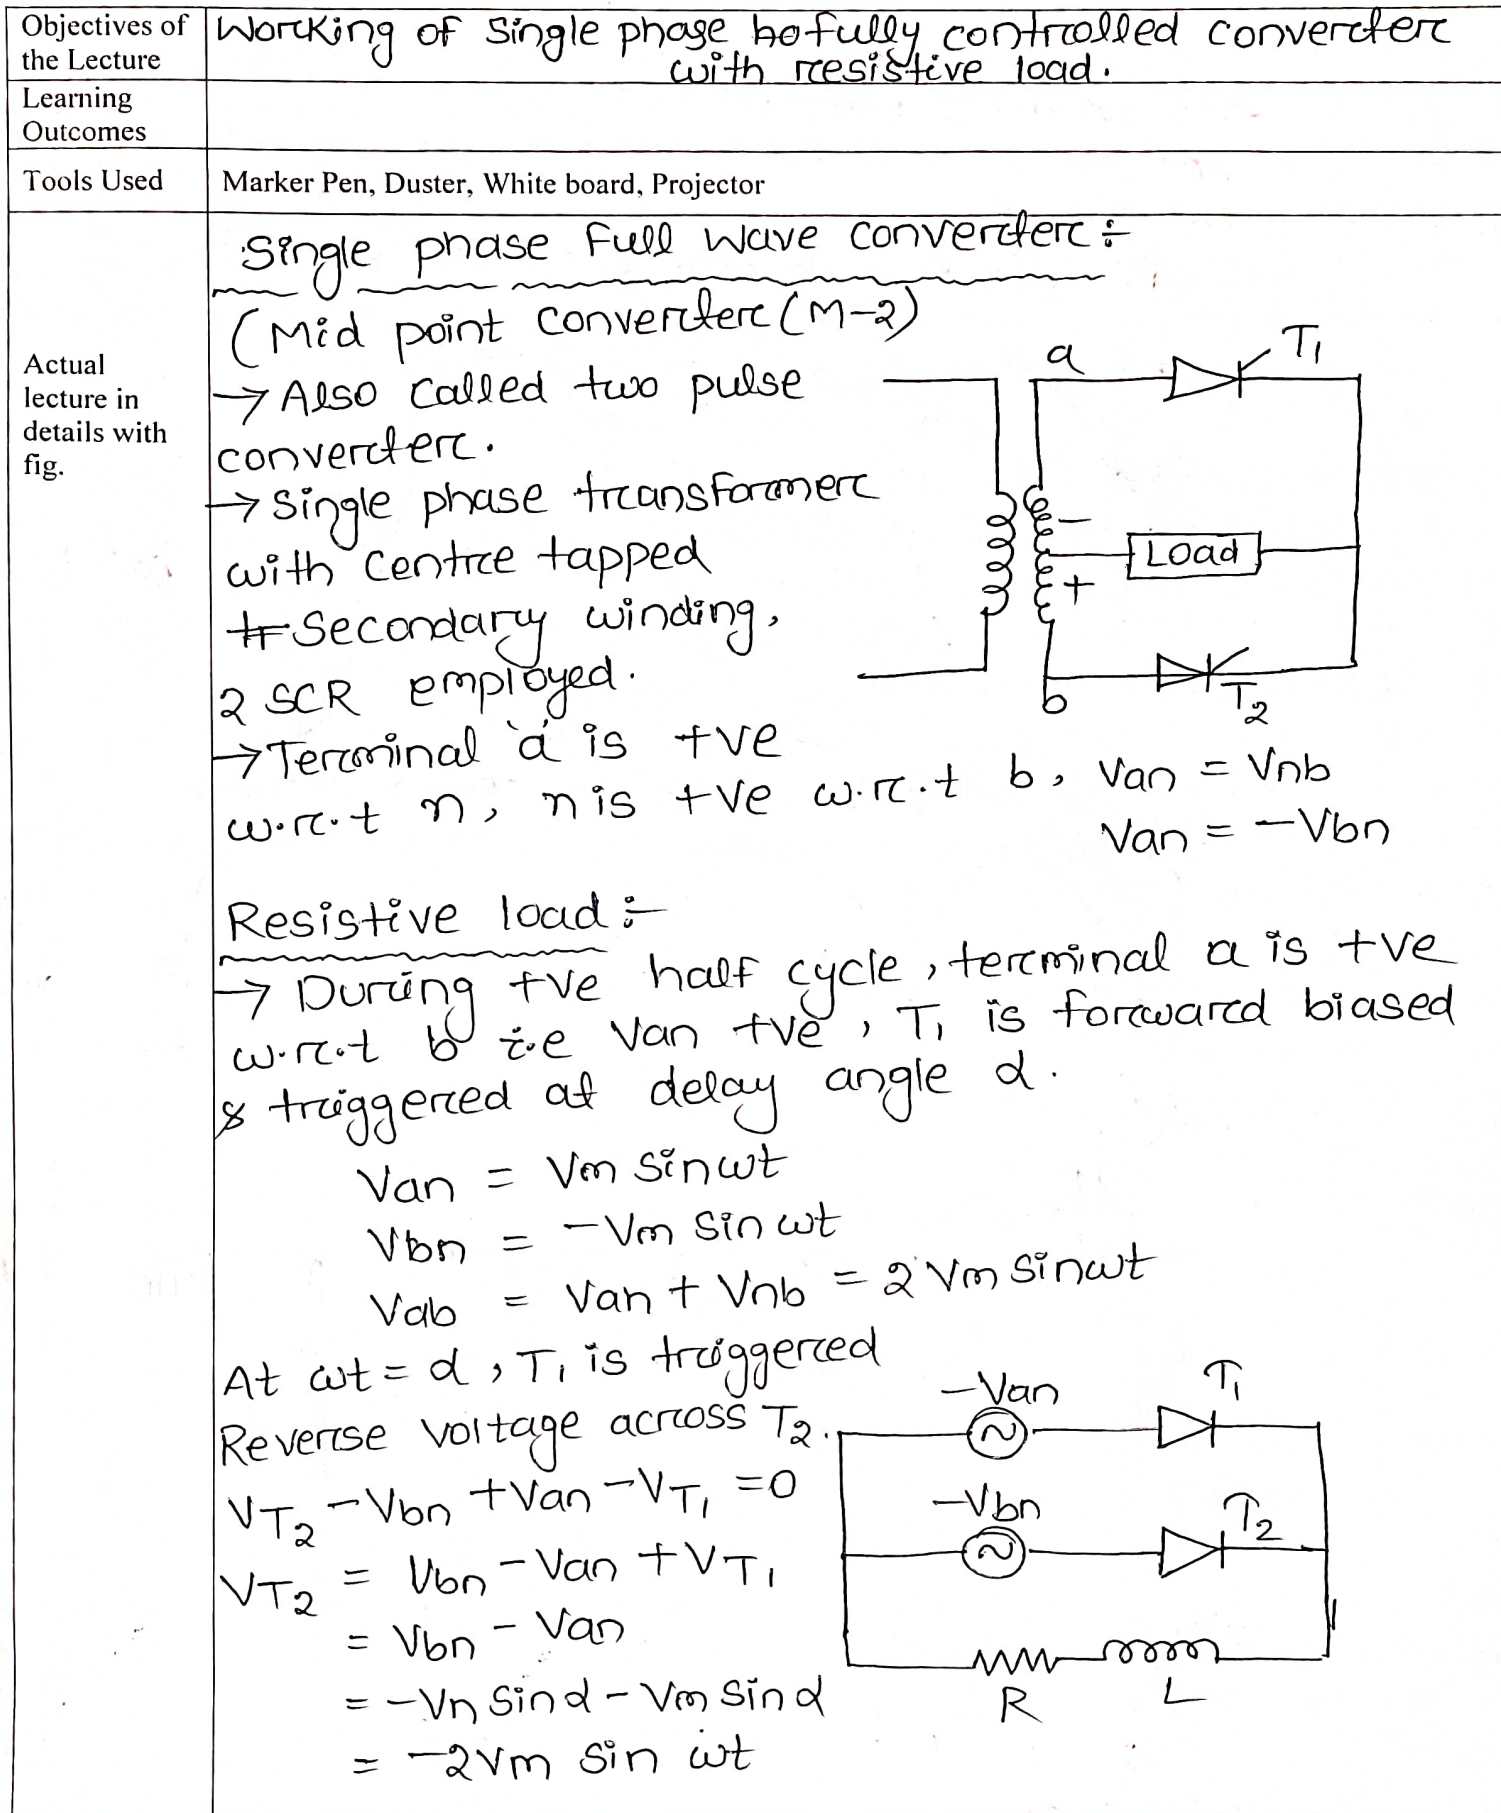 Objectives of the Lecture
Working of Single phase fully controlled converter
with resistive load.
Learning Outcomes
Tools Used
Marker Pen, Duster, White board, Projector
Actual lecture in details with fig.
Single phase Full Wave converter :-
(Mid point converter (M-2)
→ Also called two pulse
converter.
→ Single phase transformer
with centre tapped
Secondary winding,
2 SCR employed.
→ Terminal 'a' is +ve
w.r.t n, n is +ve w.r.t b, Van = Vnb
Van = -Vbn
a
T1
-
Load
+
b
T2
Resistive load :-
→ During +ve half cycle, terminal a is +ve
w.r.t b i.e Van +ve, T1 is forward biased
& triggered at delay angle α.
Van = Vm sin ωt
Vbn = -Vm sin ωt
Vab = Van + Vnb = 2 Vm sin ωt
At ωt = α, T1 is triggered
Reverse voltage across T2.
VT2 - Vbn + Van - VT1 = 0
VT2 = Vbn - Van + VT1
= Vbn - Van
= -Vn sin α - Vm sin α
= -2Vm sin ωt
-Van
T1
-Vbn
T2
R
L